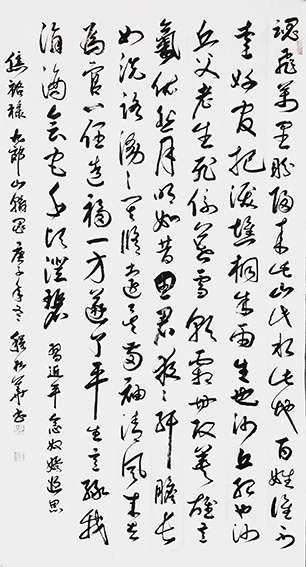 魂飛萬里盼歸來此山此水此地百姓谁不
爱好官把淚焦桐成雨生也沙丘死也沙
丘父老生死係暮雪朝霜毋改英雄意
氣依然月明如昔思君夜夜肝膽長
如洗路漫漫其修遠矣两袖清风来去
为官一任造福一方遂了平生意绿我
涓滴会它千顷澄碧 習近平念奴娇追思
焦裕禄 九郎山翰墨 庚子年 华书